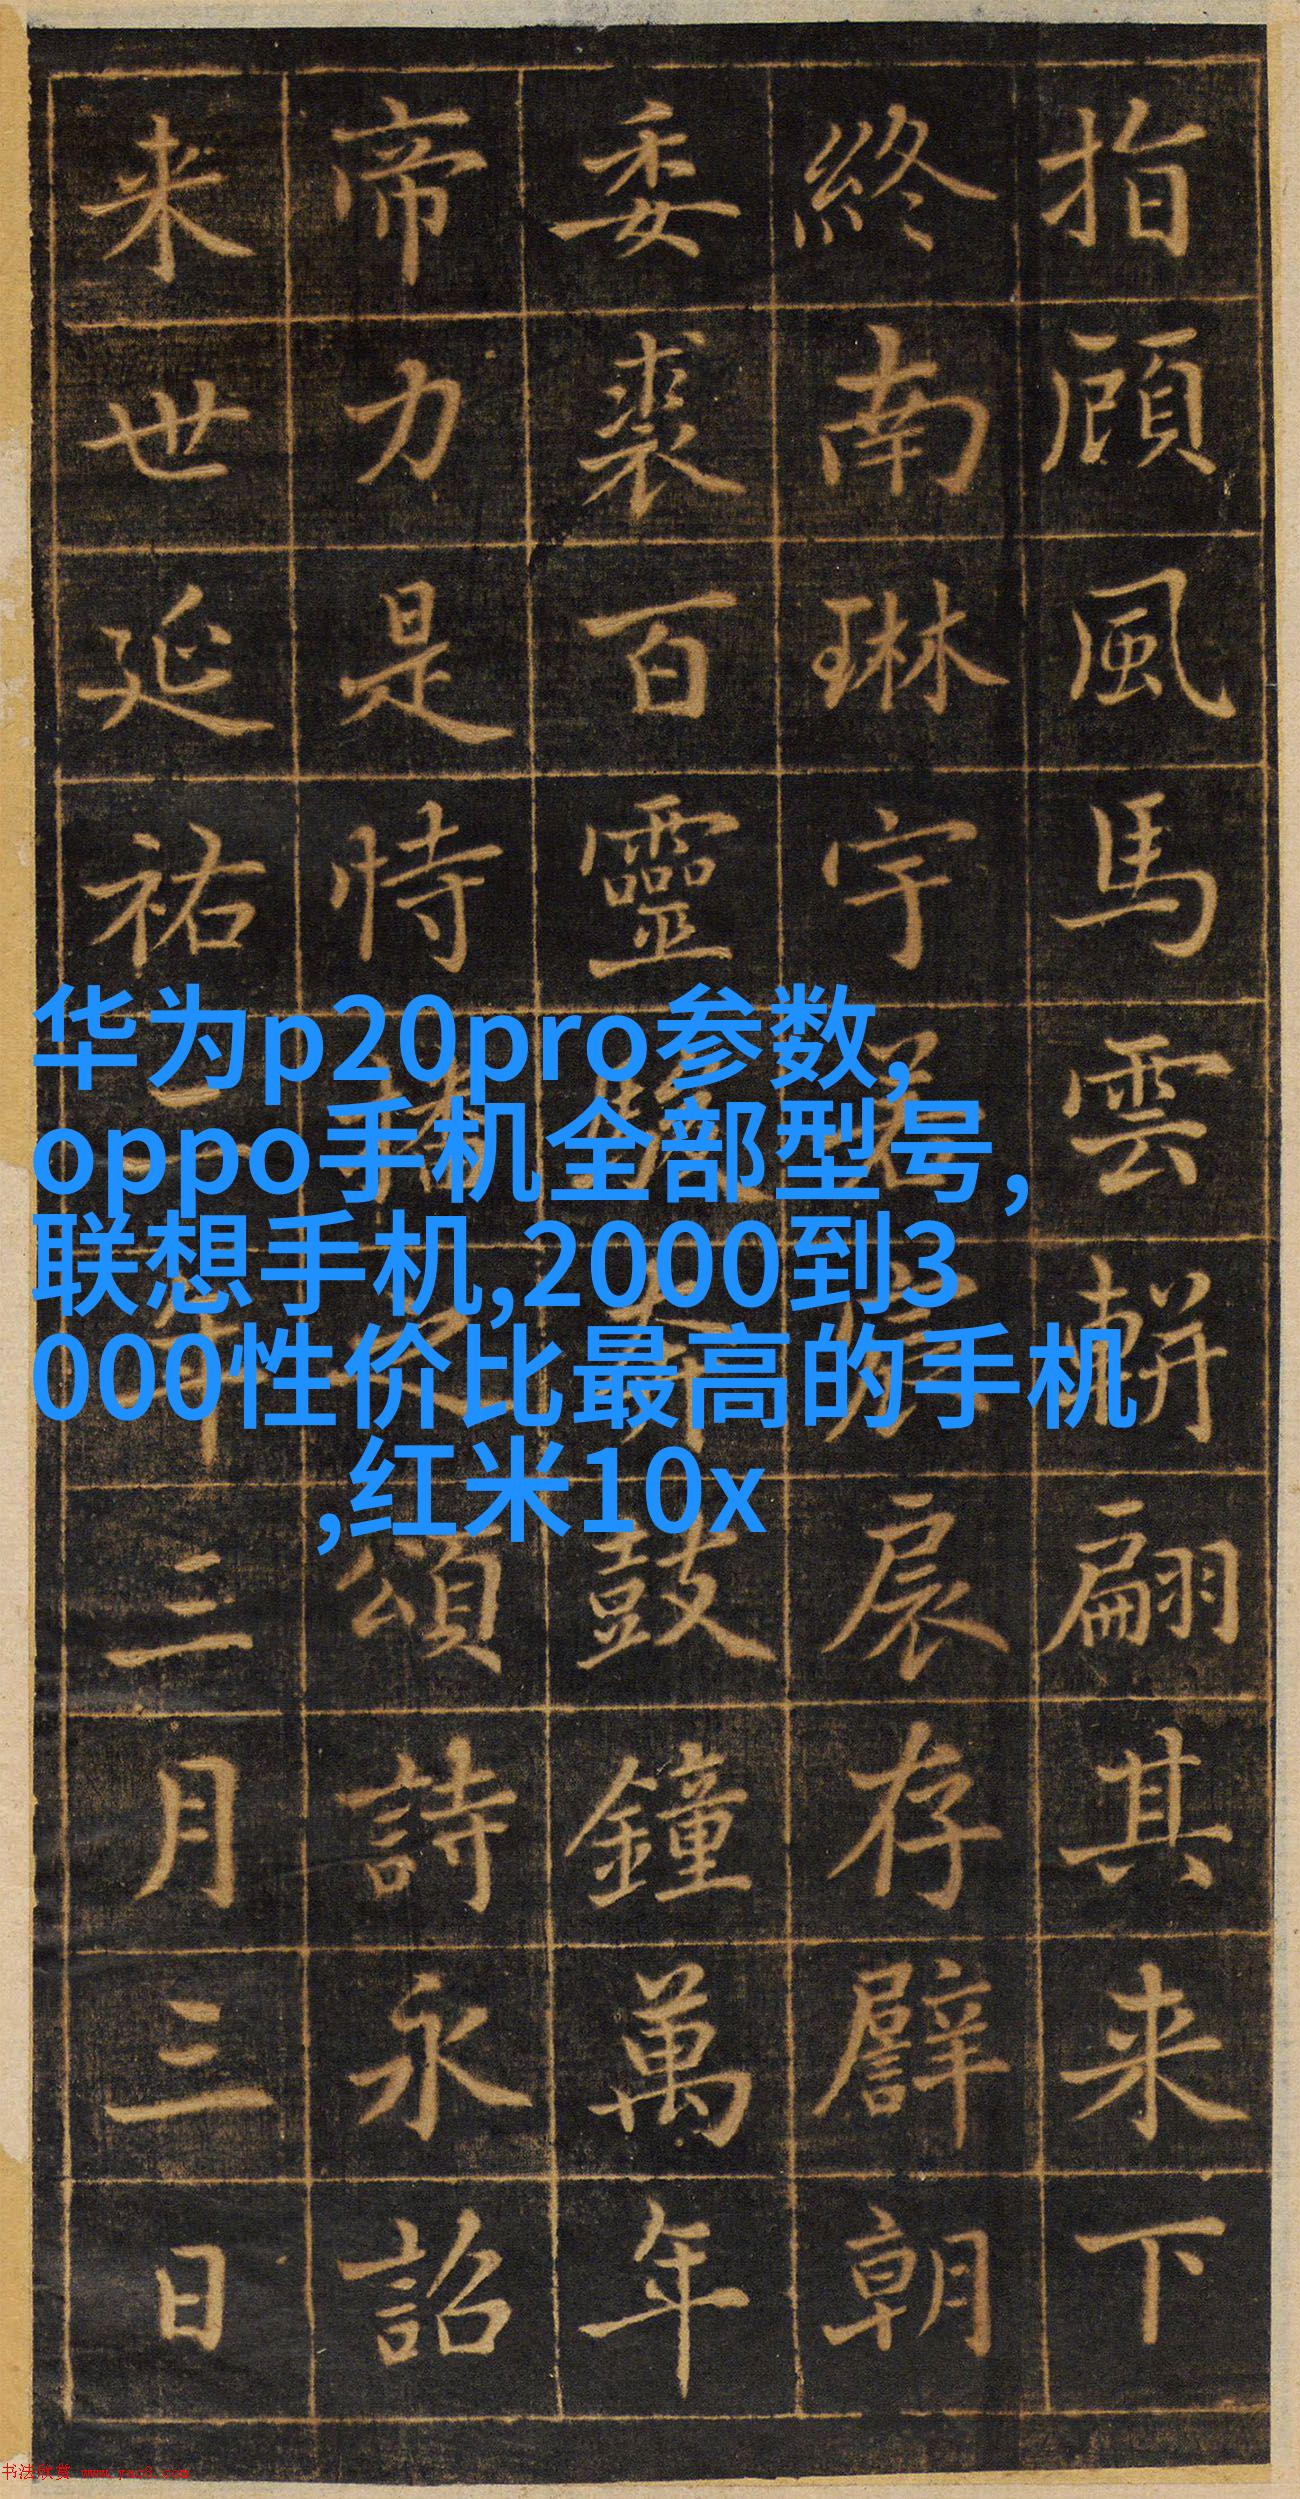 指顧風馬雲軿翩其来下
終南琳宇扆存朝
委裘百靈鼓鐘萬年
帝力是恃播之頌詩永詔
来世延祐二年三月三日
华为p20pro参数,
oppo手机全部型号,
联想手机,2000到3
000性价比最高的手机
,红米10x
书法欣赏 www.yac8.com